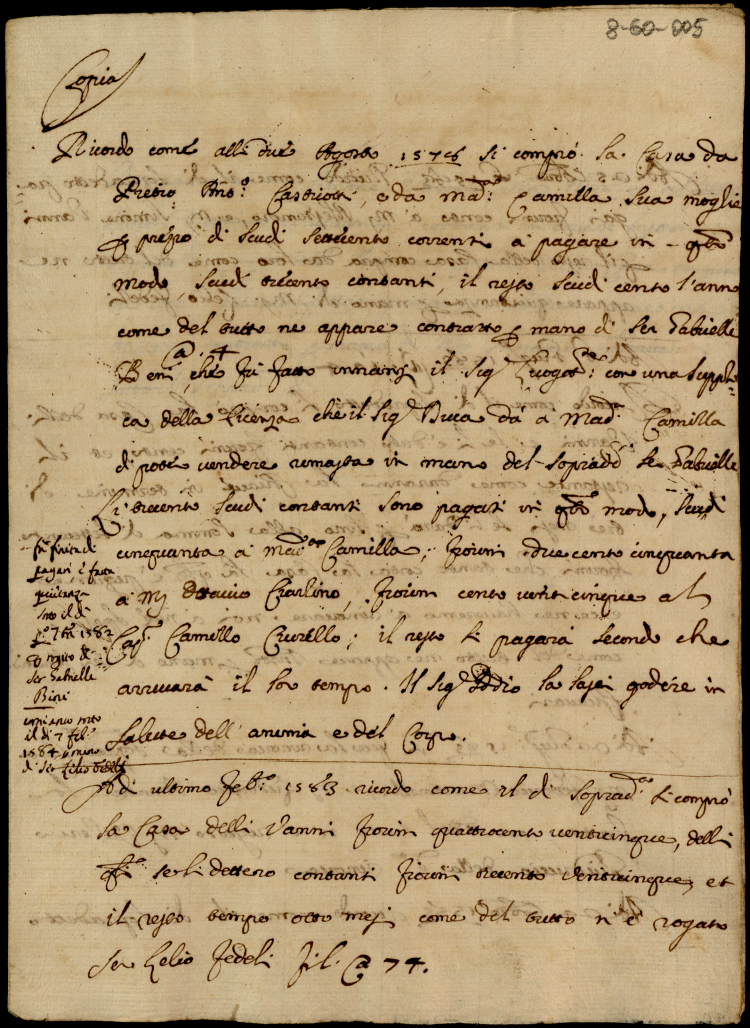 8-60-005
Copia
Ricordo come alli due Agosto 1576 si comprò la Casa da
Pietro Ant.º Castriotti, e da Mad.ª Camilla sua moglie
prezzo di Scudi settecento correnti à pagare in
modo, Scudi trecento contanti, il resto Scudi cento l'anno
come del tutto ne appare contratto mano di Ser Gabrielle
che fù fatto innanzi il Sig.r Luogot.te: con una suppli=
ca della licenza che il Sig.r Duca dà à Mad.ª Camilla
di poter vendere rimasta in mano del Soprad.º Ser Gabrielle
Li trecento Scudi contanti sono pagati in modo, Scudi
cinquanta à Mad.ª Camilla, fiorini duecento cinquanta
à Ottavio Carlino, fiorini cento venticinque al
Cap.º Camillo; il resto si pagarà secondo che
arrivarà il lor tempo. Il Sig.r Iddio la lassi godére in
salute dell'anima e del Corpo.
finita di
pagari, è fatta
quietanza
sotto il di
7bre 1582
rogito di
Ser Gabrielle
Bini
il di 7
1584 mano
di Ser Lelio fedeli
Adi ultimo Feb.º 1583 ricordo come il di soprad.º si comprò
la Casa delli Vanni fiorini quattrocento venticinque, delli
se li dettero contanti fiorini trecento venticinque, et
il resto tempo otto mesi come del tutto n'è rogato
Ser Lelio Fedeli fil. 74.